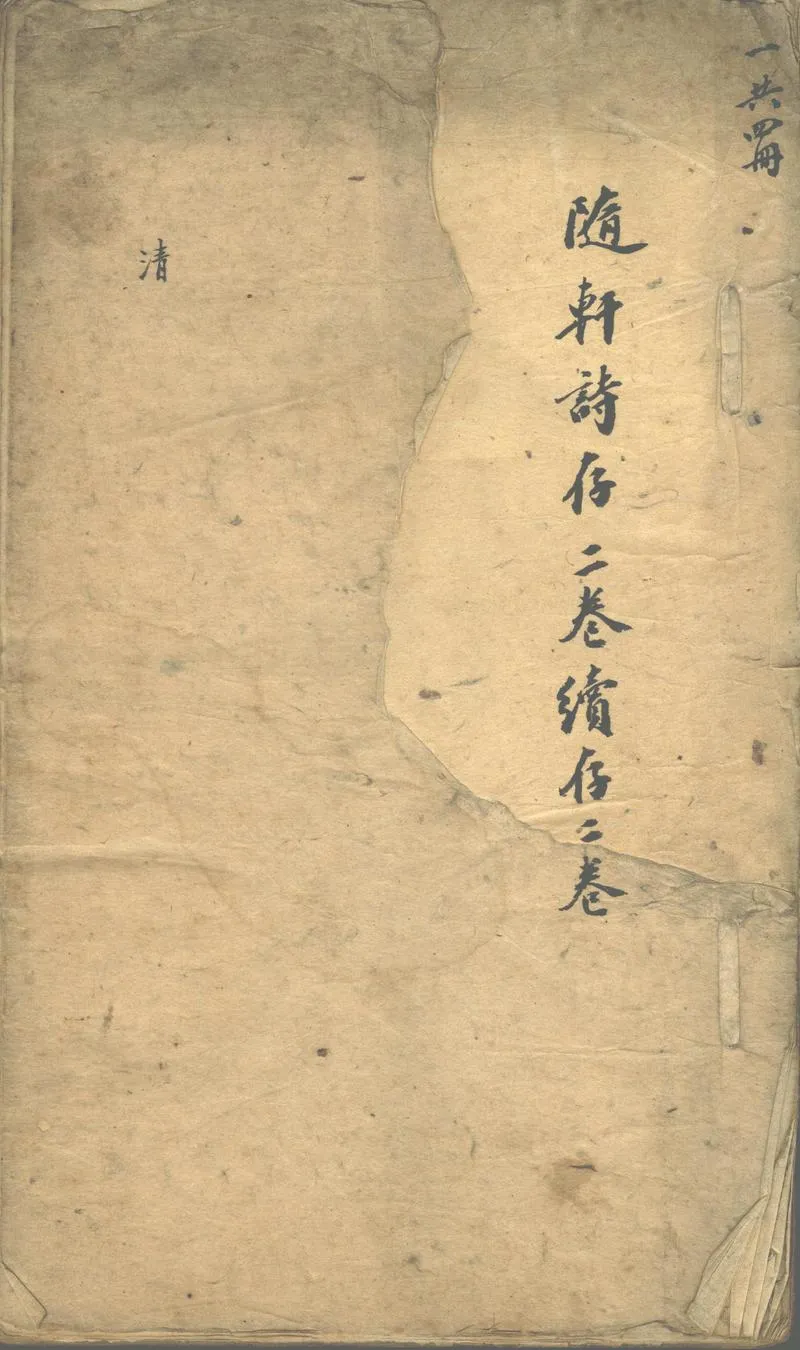 一共四冊
隨軒詩存二卷續存二卷
清